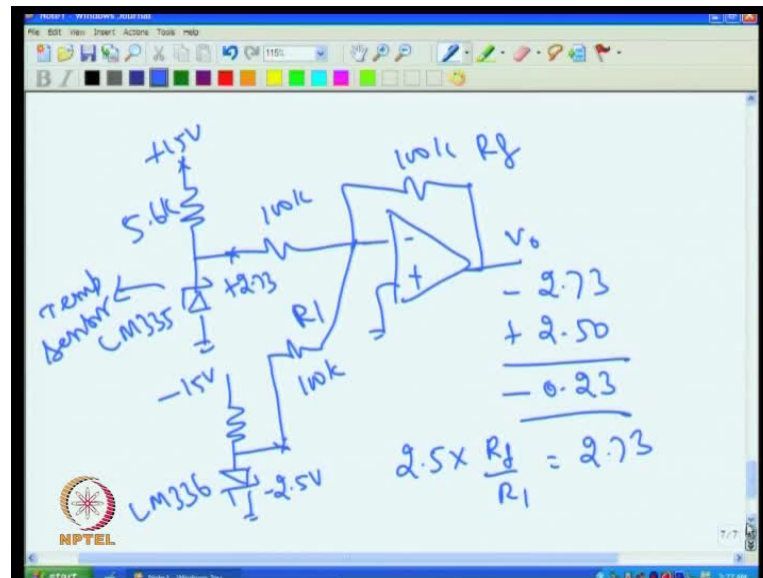 Note1 - Windows Journal
File Edit View Insert Actions Tools Help
115%
B I
+15V
5.6K
100k
100k Rf
V0
+2.73
Temp
Sensor
LM335
R1
100k
-15V
LM336
-2.5V
- 2.73
+ 2.50
- 0.23
2.5 x Rf/R1 = 2.73
- +
NPTEL
7/7
start